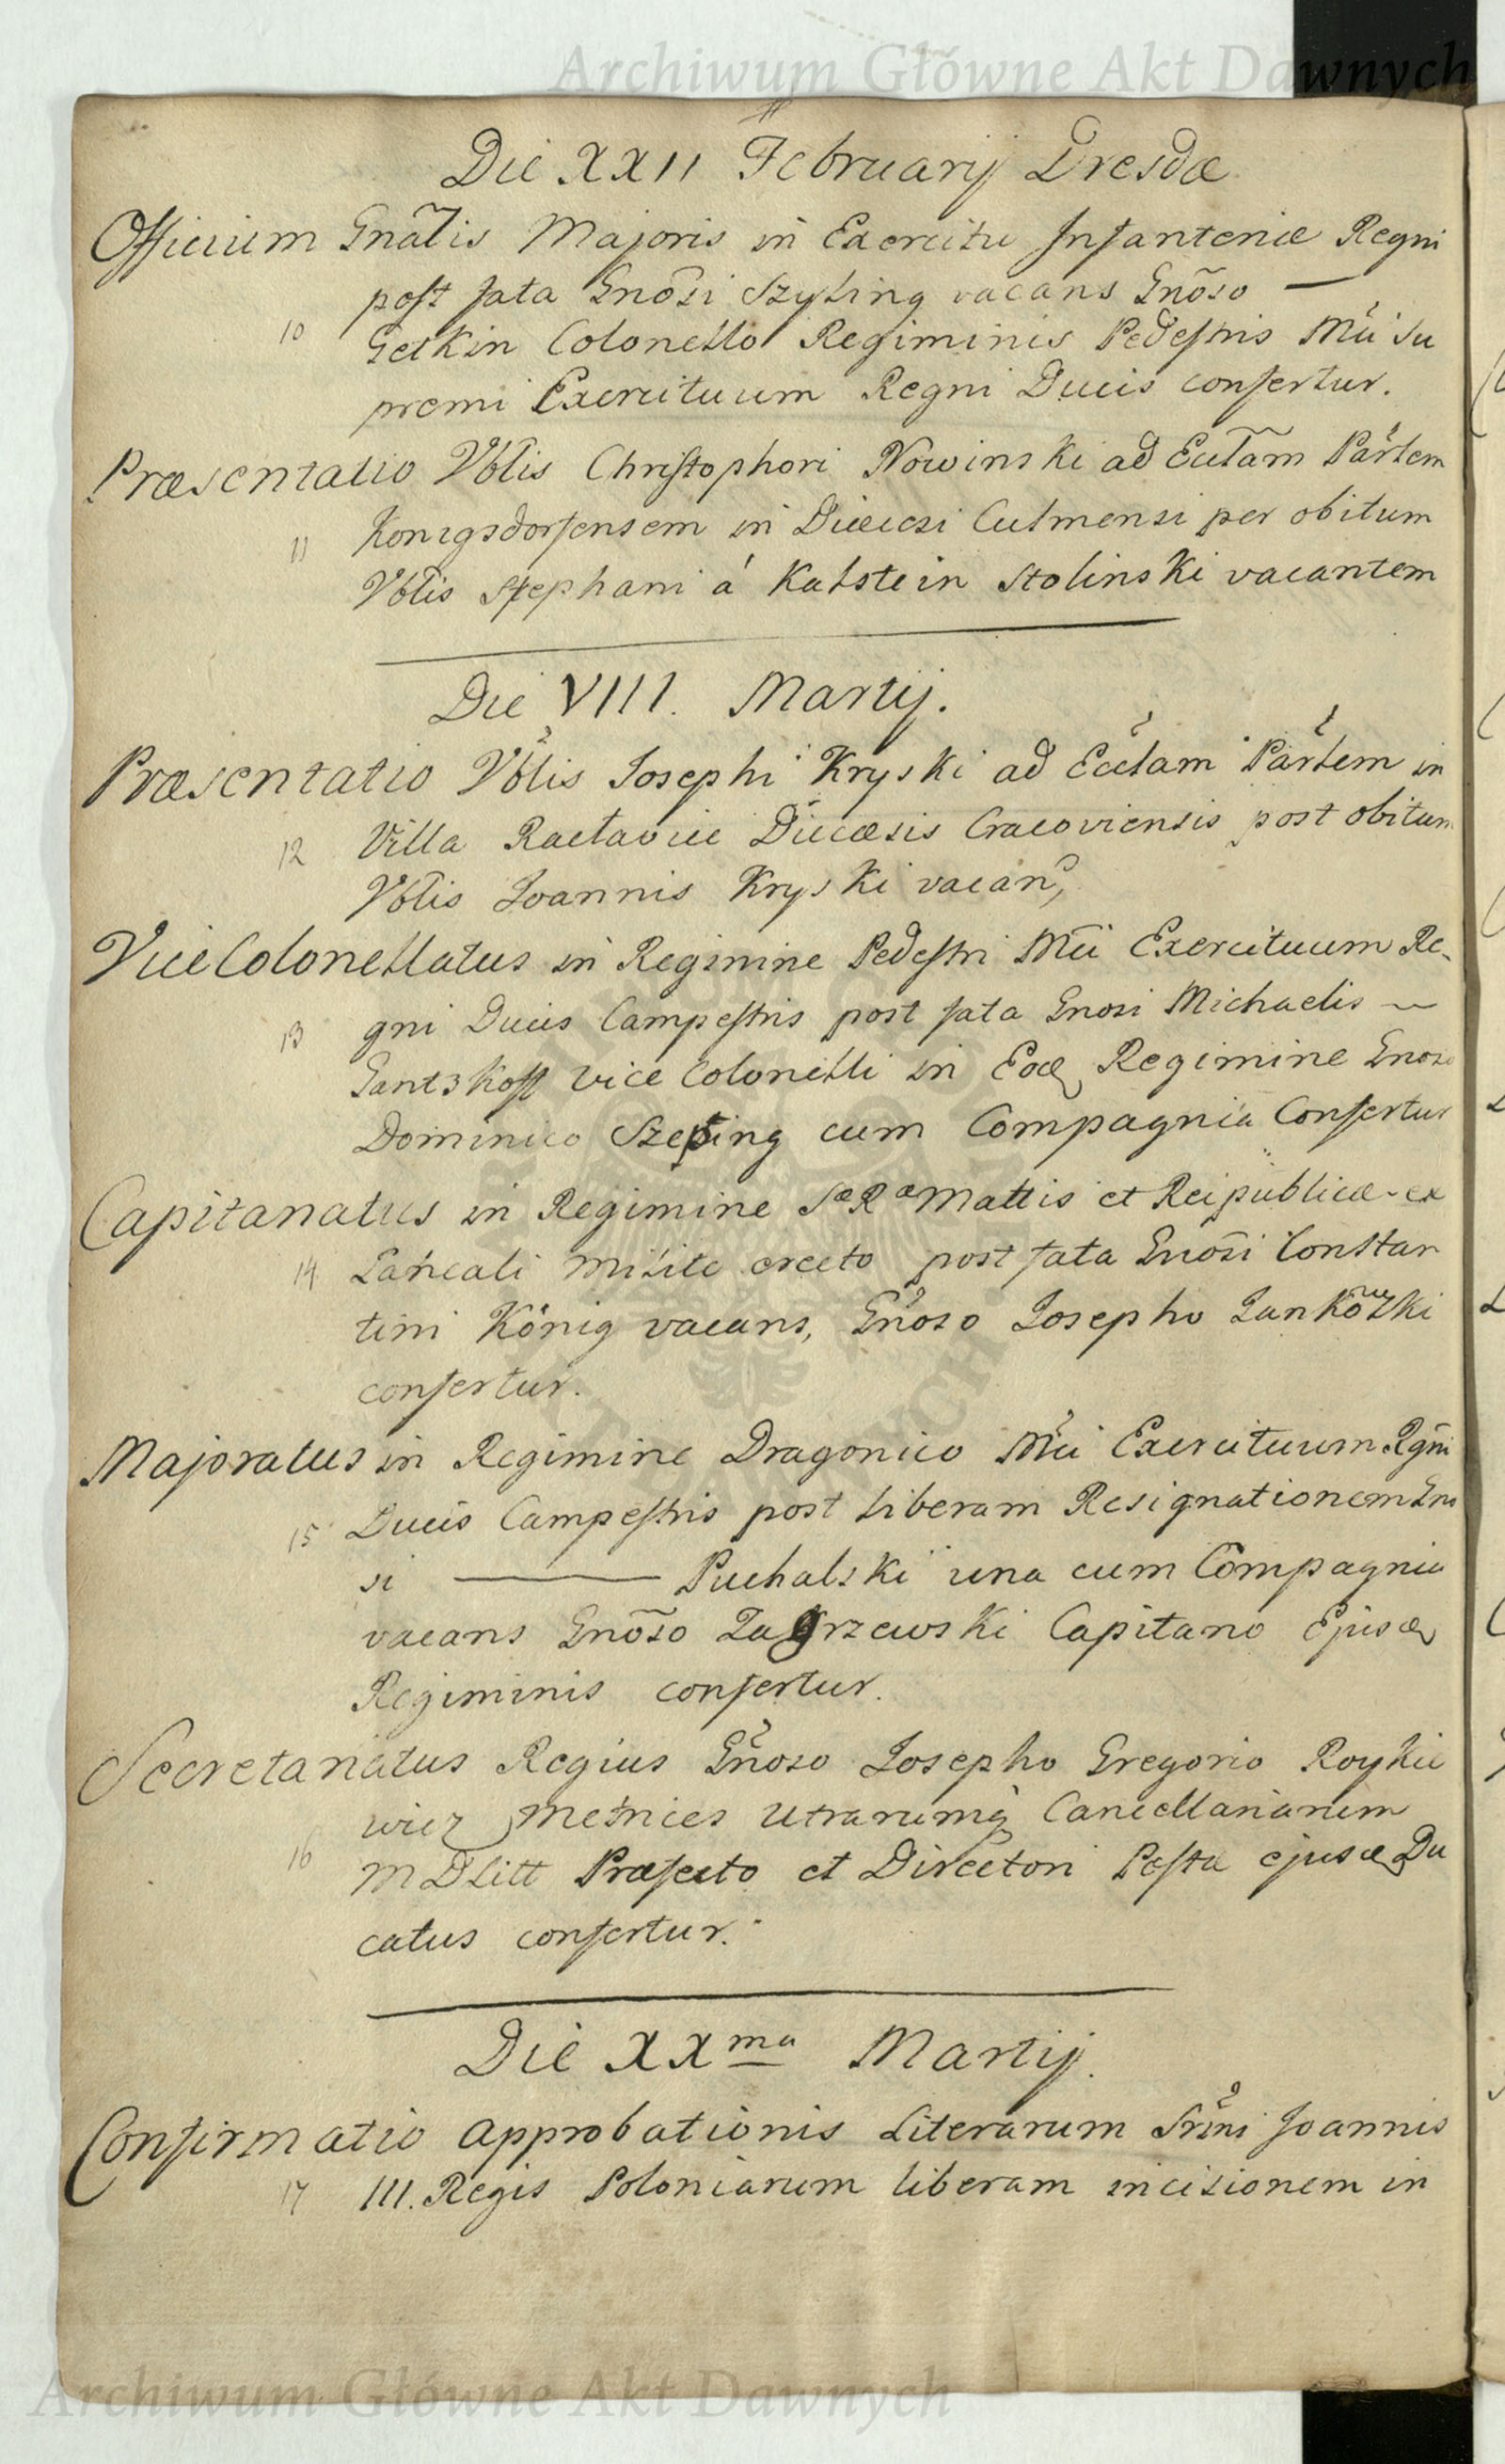 Archiwum Główne Akt Dawnych
Die XXII Februarij Dresdæ
Officium Gnãlis Majoris in Exercitu Infanteriæ Regni
post fata Gnõsi Szyling vacans Gnõso —
10 Getkin Colonello Regiminis Pedestris Mũi Su
premi Exercituum Regni Ducis confertur.
Præsentatio Vblis Christophori Nowinski ad Ecclam Parlem
11 Konigsdorfensem in Diæcesi Culmensi per obitum
Vblis Stephani á Kalstein Stolinski vacantem
Die VIII. Martij.
Præsentatio Vblis Josephi Kryski ad Ecclam Parlem in
12 Villa Racłavice Diecæsis Cracoviensis post obitum
Vblis Joannis Kryski vacan,
ViceColonellatus in Regimine Pedestri Mũi Exercituum Re-
13 gni Ducis Campestris post fata Gnosi Michaelis ~
Gantzkoff vice Colonelli in Eod Regimine Gnoso
Dominico Szeping cum Compagnia Confertur
Capitanatus in Regimine Sæ Ræ Mattis et Reipublicæ ex
14 Laneali milite erecto post fata Gnõsi Constan
tini König vacans, Gnõso Josepho Jankowski
confertur.
Majoratus in Regimine Dragonico Mũi Exercituum Rgni
15 Ducis Campestris post liberam Resignationem Gno
si ——— Puchalski una cum Compagnia
vacans Gnõso Zagrzewski Capitano Ejusd
Regiminis confertur.
Secretariatus Regius Gnõso Josepho Gregorio Roykie
wicz Metrices Utrarumq Cancellariarum
16 MDLitt Præfecto et Directori Postæ ejusd Du
catus confertur.
Die XXma Martij.
Confirmatio Approbationis Literarum Srmi Joannis
17 III. Regis Poloniarum liberam incisionem in
Archiwum Główne Akt Dawnych